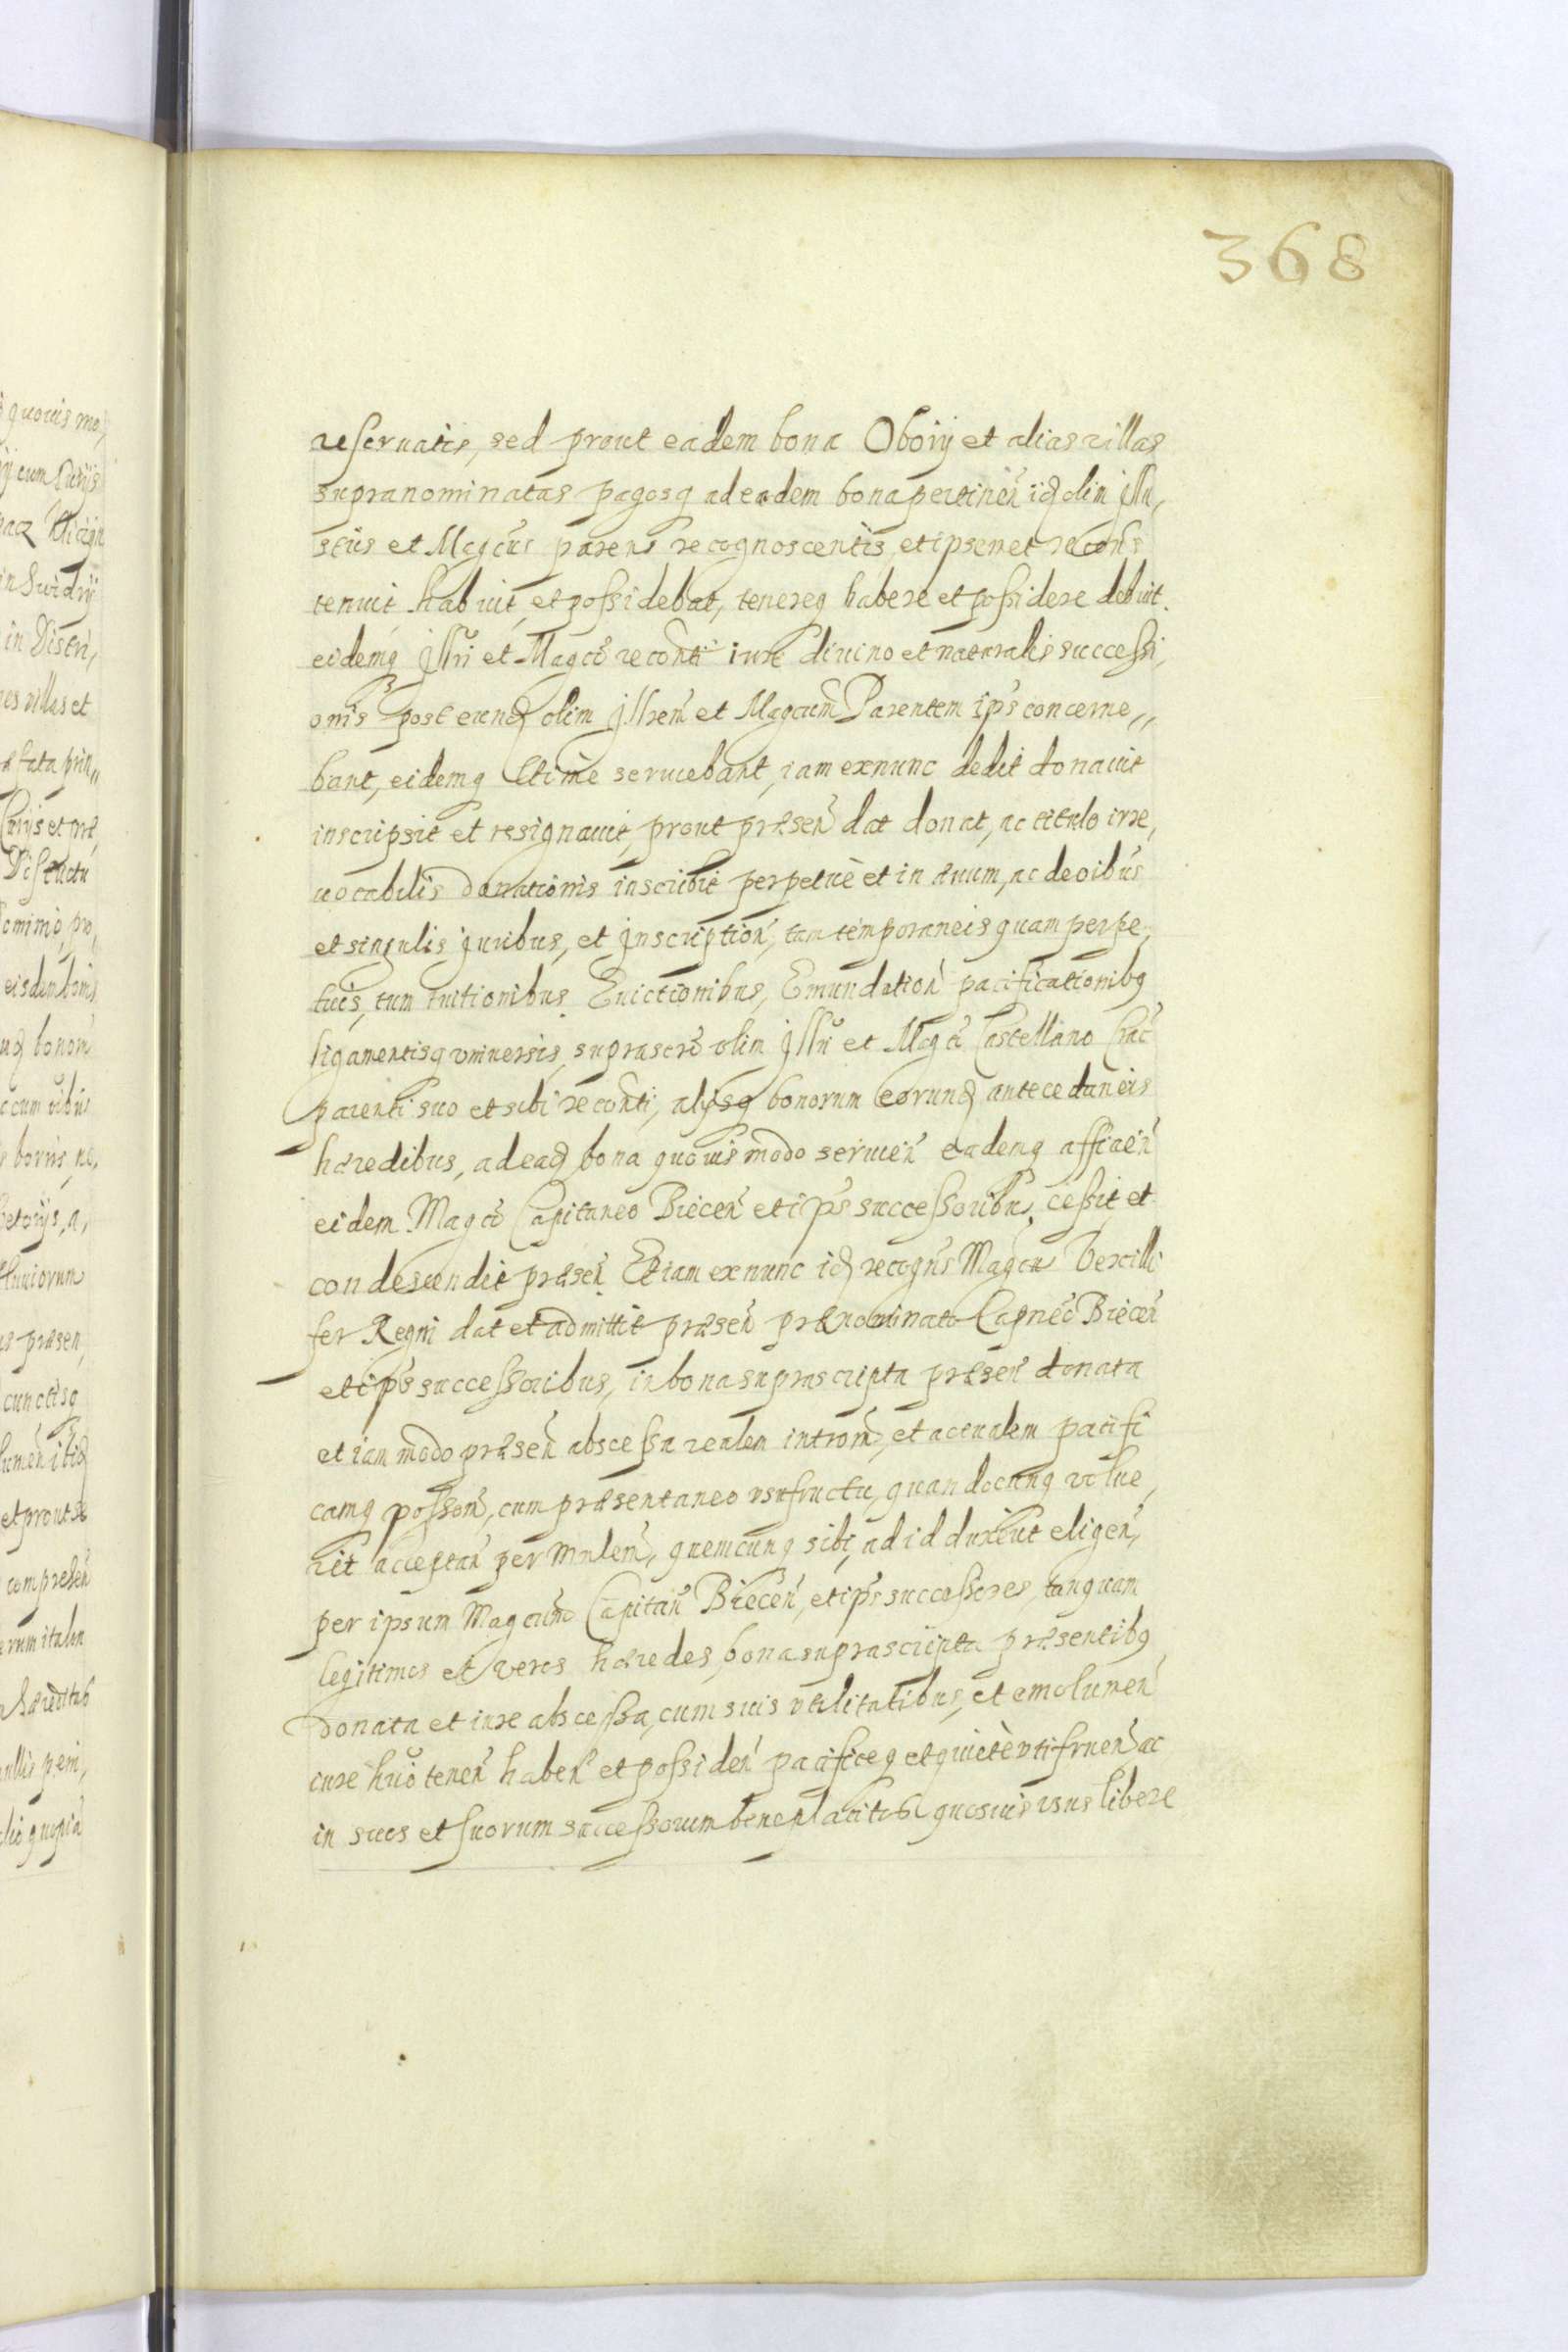 368
reseruatis, sed prout eadem bona Obory et alias villas
supranominatas pagosq ad eadem bona pertinen̄ iḋ olim Illu,
stris et Magcus parens recognoscentis, et ipsemet recons
tenuit, habuit, et possidebat, tenereq habere et possidere debuit.
eidemq Illri et Magco reconti iure diuino et naturalis successi,
onis post eund olim Illrem et Magcum Parentem ips concerne,,
bant, eidemq ltime seruiebant, iam exnunc dedit donauit
inscripsit et resignauit, prout præsen̄ dat donat, ac titulo irre,
uocabilis donationis inscribit perpetuè et in æuum, ac de oibus
et singulis juribus, et Inscription̄, tam temporaneis quam perpe,
tuis, tum tuitionibus. Euictionibus, Emundation̄ pacificationibq
ligamentisq vniuersis, suprascro olim Illri et Magco Castellano Crac
parenti suo et sibi reconti, alysq bonorum eorund antecedaneis
hæredibus, ad ead bona quouis modo seruien̄ eademq afficien̄
eidem Magco Capitaneo Biecen̄ et ips successoribus, cessit et
condescendit præsen̄. Etiam exnunc id recogns Magcus Vexilli
fer Regni dat et admittit præsen̄ prænominato Capneo Biecen̄
et ips successoribus, in bona suprascripta præsen̄ donata
et iam modo præsen̄ abscessa realem introm, et actualem pacifi
camq possom, cum præsentaneo vsufructu, quandocunq volue,
rit acceptan̄ per mnlem, quemcunq sibi, ad id duxerit eligen̄,
per ipsum Magcum Capitan̄ Biecen̄, et ips successores, tanquam
legitimos et veros hæredes, bona suprascripta præsentibq
donata et iure abscessa, cum suis vtilitatibus, et emolumen̄
iure hrio tenen̄ haben̄ et possiden̄ pacificeq et quietè vtifruen̄ ac
in suos et suorum successorum beneplacitos quosuis vsus libere